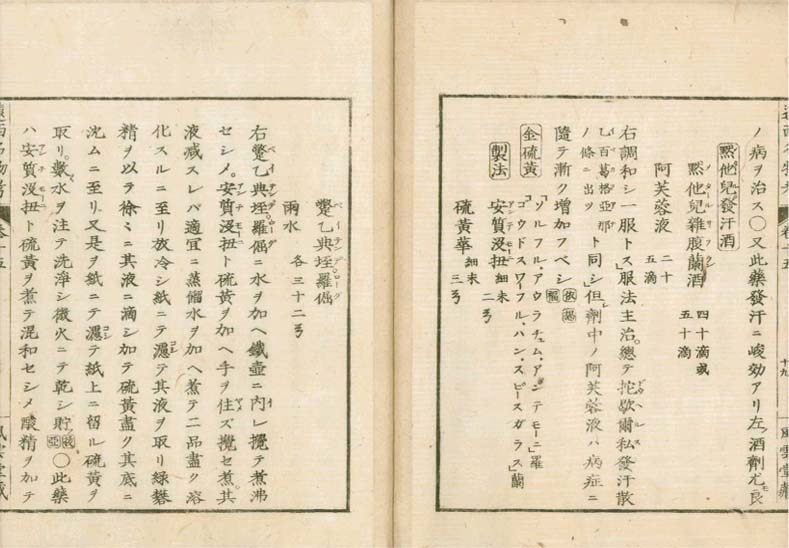 ノ病ヲ治ス○又此藥發汗ニ峻効アリ左ノ酒劑尤モ良
㸃他兒發汗酒
㸃他兒雜腹蘭酒 四十滴或五十滴
阿芙蓉液 二十五滴
右調和シ一服トス」服法主治。總テ佗歇爾私發汗散
乙百葛格亞那ノ條ニ出ツト同シ」但シ劑中ノ阿芙蓉液ハ病症ニ
隨テ漸ク增加フベシ
金硫黃 「ゾルフル・アウラチュム・アンテモーニ」羅
「ゴウドスワーフル・ハン・スピースガラス」蘭
製法 安質沒扭細末 二ヲ
硫黃華細末 三ヲ
十九
鼈乙典垤羅傴
雨水 各三十二ヲ
右鼈乙典垤羅傴ニ水ヲ加ヘ鐵壺ニ内レ攪テ煮沸
セシメ。安質沒扭ト硫黃ヲ加ヘ手ヲ住ズ攪セ煮。其
液減スレバ適宜ニ蒸餾水ヲ加ヘ煮テ二品盡ク溶
化スルニ至リ放冷シ紙ニテ濾テ其液ヲ取リ綠礬
精ヲ以テ徐ミニ其液ニ滴シ加テ硫黃盡ク其底ニ
沈ムニ至リ又是ヲ紙ニテ濾テ紙上ニ留ル硫黃ヲ
取リ。數水ヲ注テ洗淨シ微火ニテ乾シ貯○此藥
ハ安質沒扭ト硫黃ヲ煮テ混和セシメ酸精ヲ加テ
遠西名物考 卷十五
風雲堂藏